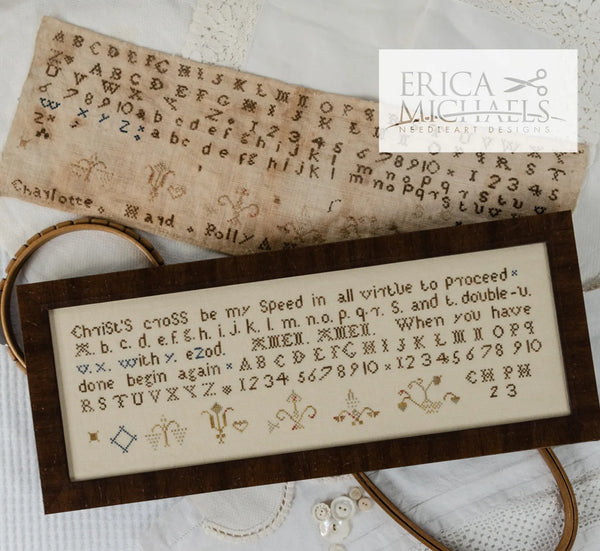 ERICA
MICHAELS
NEEDLEART DESIGNS
A B C D E F G H I J K L M N O P Q
A B C D E F G H I J K L M N O P Q R S T
U V W X
6 7 8 9 10 a b c d e f g h i j k l m n o p q r s t u v
w x y z 1 2 3 4 5 6 7 8 9 10 1 2 3 4 5
z a b c d e f g h i j k l m n o p q r s t u v
Charlotte Ward Polly
Christ's cross be my speed in all virtue to proceed
A. b. c. d. e. f. g. h. i. j. k. l. m. n. o. p. q. r. s. and t. double-u.
v. x. with y. ezod. AMEN. AMEN. When you have
done begin again A B C D E F G H I J K L M N O P Q
R S T U V X Y Z 1 2 3 4 5 6 7 8 9 10 1 2 3 4 5 6 7 8 9 10
CH PH
2 3